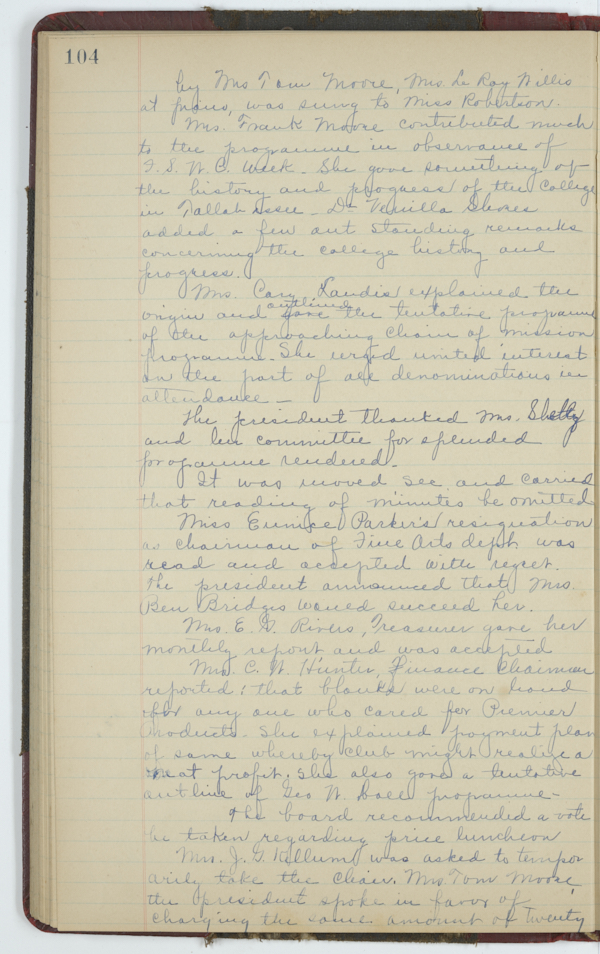 104
by Mrs Tom Moore, Mrs. Le Roy Willis
at piano, was sung to Miss Robertson.
Mrs. Frank Moore contributed much
to the programme in observance of
F. S. W. C. Week. She gave something of
the history and progress of the College
in Tallahassee - Dr Venilla Shores
added a few out standing remarks
concerning the college history and
progress.
Mrs. Cary Landis explained the
origin and outlined the tentative programme
of the approaching Chain of Mission
programme. She urged united interest
on the part of all denominations in
attendance -
The president thanked Mrs. Shelly
and her committee for splended
programme rendered.
It was moved sec and carried
that reading of minutes be omitted
Miss Eunice Parker's resignation
as chairman of Fine Arts dept was
read and accepted with regret.
The president announced that Mrs.
Ben Bridges would succeed her.
Mrs. E. G. Rivers, Treasurer gave her
monthly report and was accepted
Mrs. C. W. Hunter, Finance Chairman
reported: that blanks were on hand
for any one who cared for Premier
Products. She explained payment plan
of same whereby club might realize a
neat profit. She also gave a tentative
outline of Geo W. programme -
the board recommended a vote
be taken regarding price luncheon
Mrs. J. G. Kellum was asked to tempor
arily take the chair. Mrs. Tom Moore,
the president spoke in favor of
charging the same amount of twenty